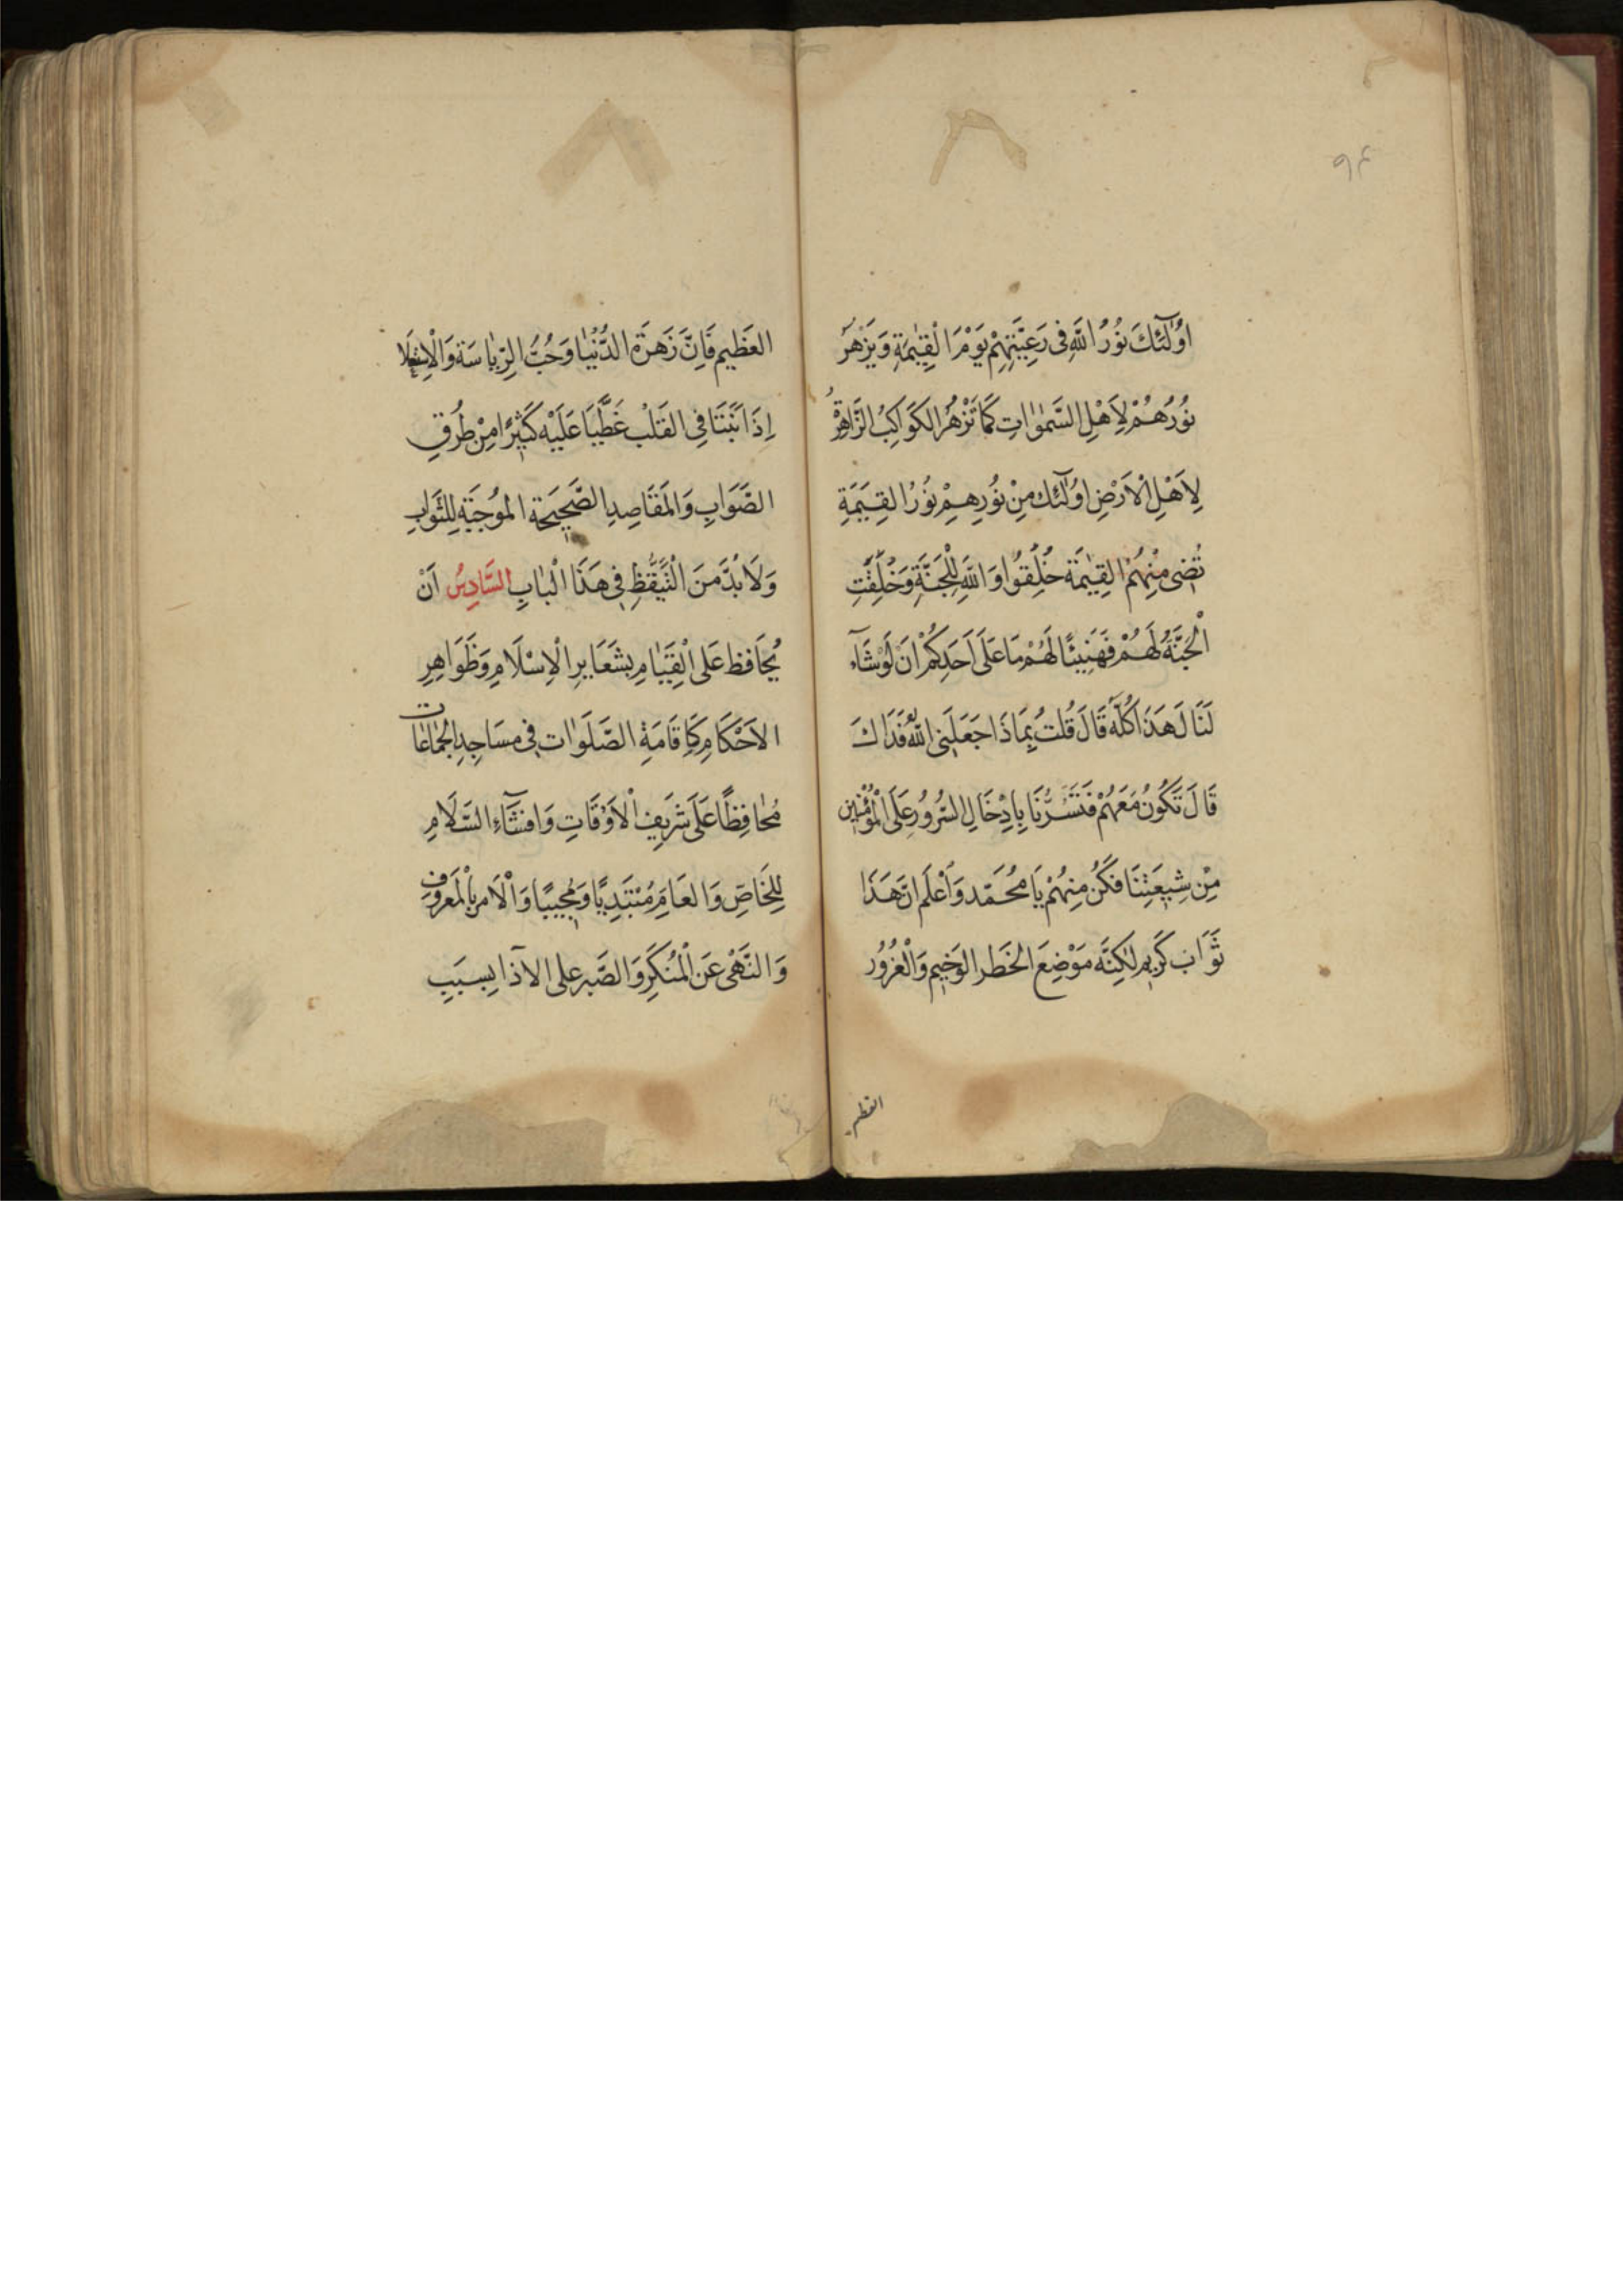 ٩٤
اُولٰٓئكَ نُورُ اللّٰهِ فى رَعِيَّتِهِمْ يَوْمَ الْقِيٰمَةِ وَيَزْهَرُ
نُورُهُمْ لِاَهْلِ السَّمٰوٰاتِ كَمَا تَزْهَرُ الكَوَاكِبُ الزَّاهِرَةُ
لِاَهْلِ الْاَرْضِ اُولٰٓئك مِنْ نُورِهِمْ نُورُ القِيَمَةِ
تُضىٔ مِنْهُمُ القِيٰمَة خُلِقُوا وَاللّٰهِ لِلْجَنَّةِ وَخُلِقَتِ
الْجَنَّةُ لَهُمْ فَهَنِيئًا لَهُمْ مَا عَلَى اَحَدِكُمْ اَنْ لَوْ شَآءَ
لَنَالَ هَذَا كُلَّه قَالَ قُلتُ بِمَاذَا جَعَلَنِى اللّٰهُ فَدَاكَ
قَالَ تَكُونُ مَعَهُمْ فَتَسُرُّنَا بِاِدْخَالِ السُّرُورِ عَلَى الْمُؤْمِنِين
مِنْ شِيعَتِنَا فَكُنْ مِنهُمْ يَا مُحَمّد وَاعْلَم انَّ هَذَا
ثَوَاب كَرِيم لٰكِنَّه مَوْضِعَ الخَطَر الوَخِيم وَالْغُرُورُ
العظيم
العَظِيم فَاِنَّ زَهرَةَ الدُّنْيٰا وَحُبَّ الرِّيٰاسَة وَالْاِسْتِعْلَا
اِذَا نَبَتَا فِى القَلبْ غَطَّيَا عَلَيْه كَثِيرًا مِنْ طُرُقِ
الصَّوَابِ وَالمَقَاصِدِ الصَّحِيحَة المُوجِبَة لِلثَّوَابِ
وَلَا بُدَّ مِنَ الْتَّيَقُّظِ فِى هَذَا الْبٰابِ السَّادِسُ اَنْ
يُحَافظ عَلى الْقِيٰامِ بشَعَايرِ الْاِسْلَامِ وَظَوَاهِرِ
الاَحْكَامِ كَاِقَامَةِ الصَّلَوٰات فِى مسَاجِدِ الجَمٰاعَات
مُحٰافِظًا عَلَى شَرِيفِ الْاَوْقَاتِ وَافشَآءِ السَّلَامِ
لِلخَاصِّ وَالعَامِ مُبْتَدِيًا وَمُجِيبًا وَالْاَمر بِالْمَعرُوفِ
وَالنَّهْى عَنِ الْمُنْكَرِ وَالصَّبر على الاذا بِسبَبِ